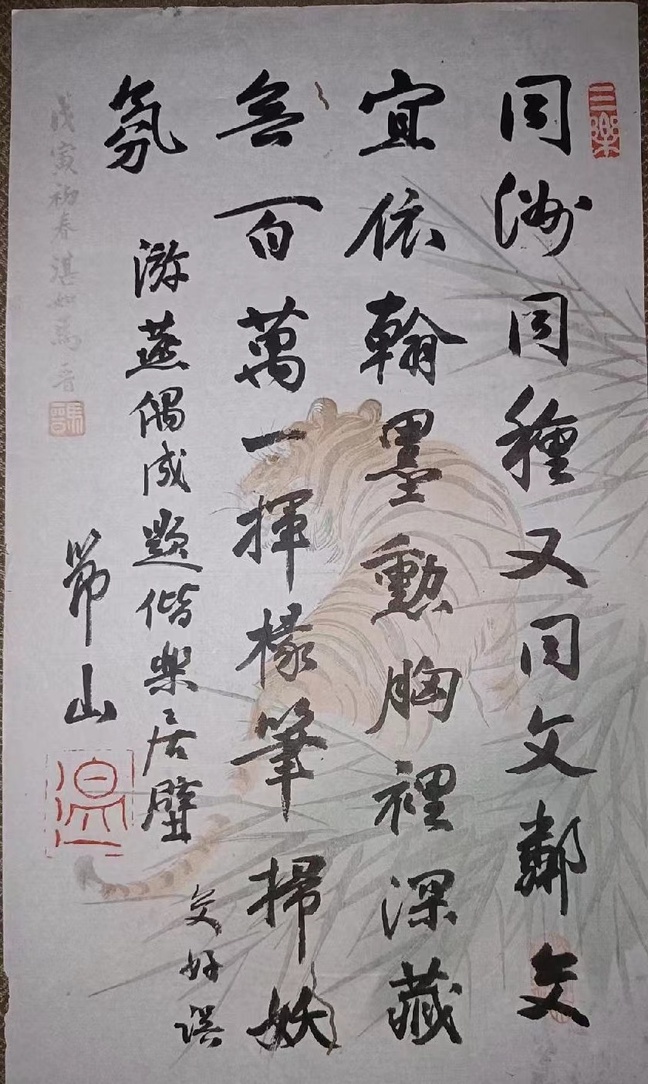 三樂
同洲同種又同文鄰交
宜依翰墨勳胸裡深藏
兵百萬一揮椽筆掃妖
氛
游燕偶成題偕樂居壁
交好誤
節山
溫
戊寅初春湛如馬晉
馬晉